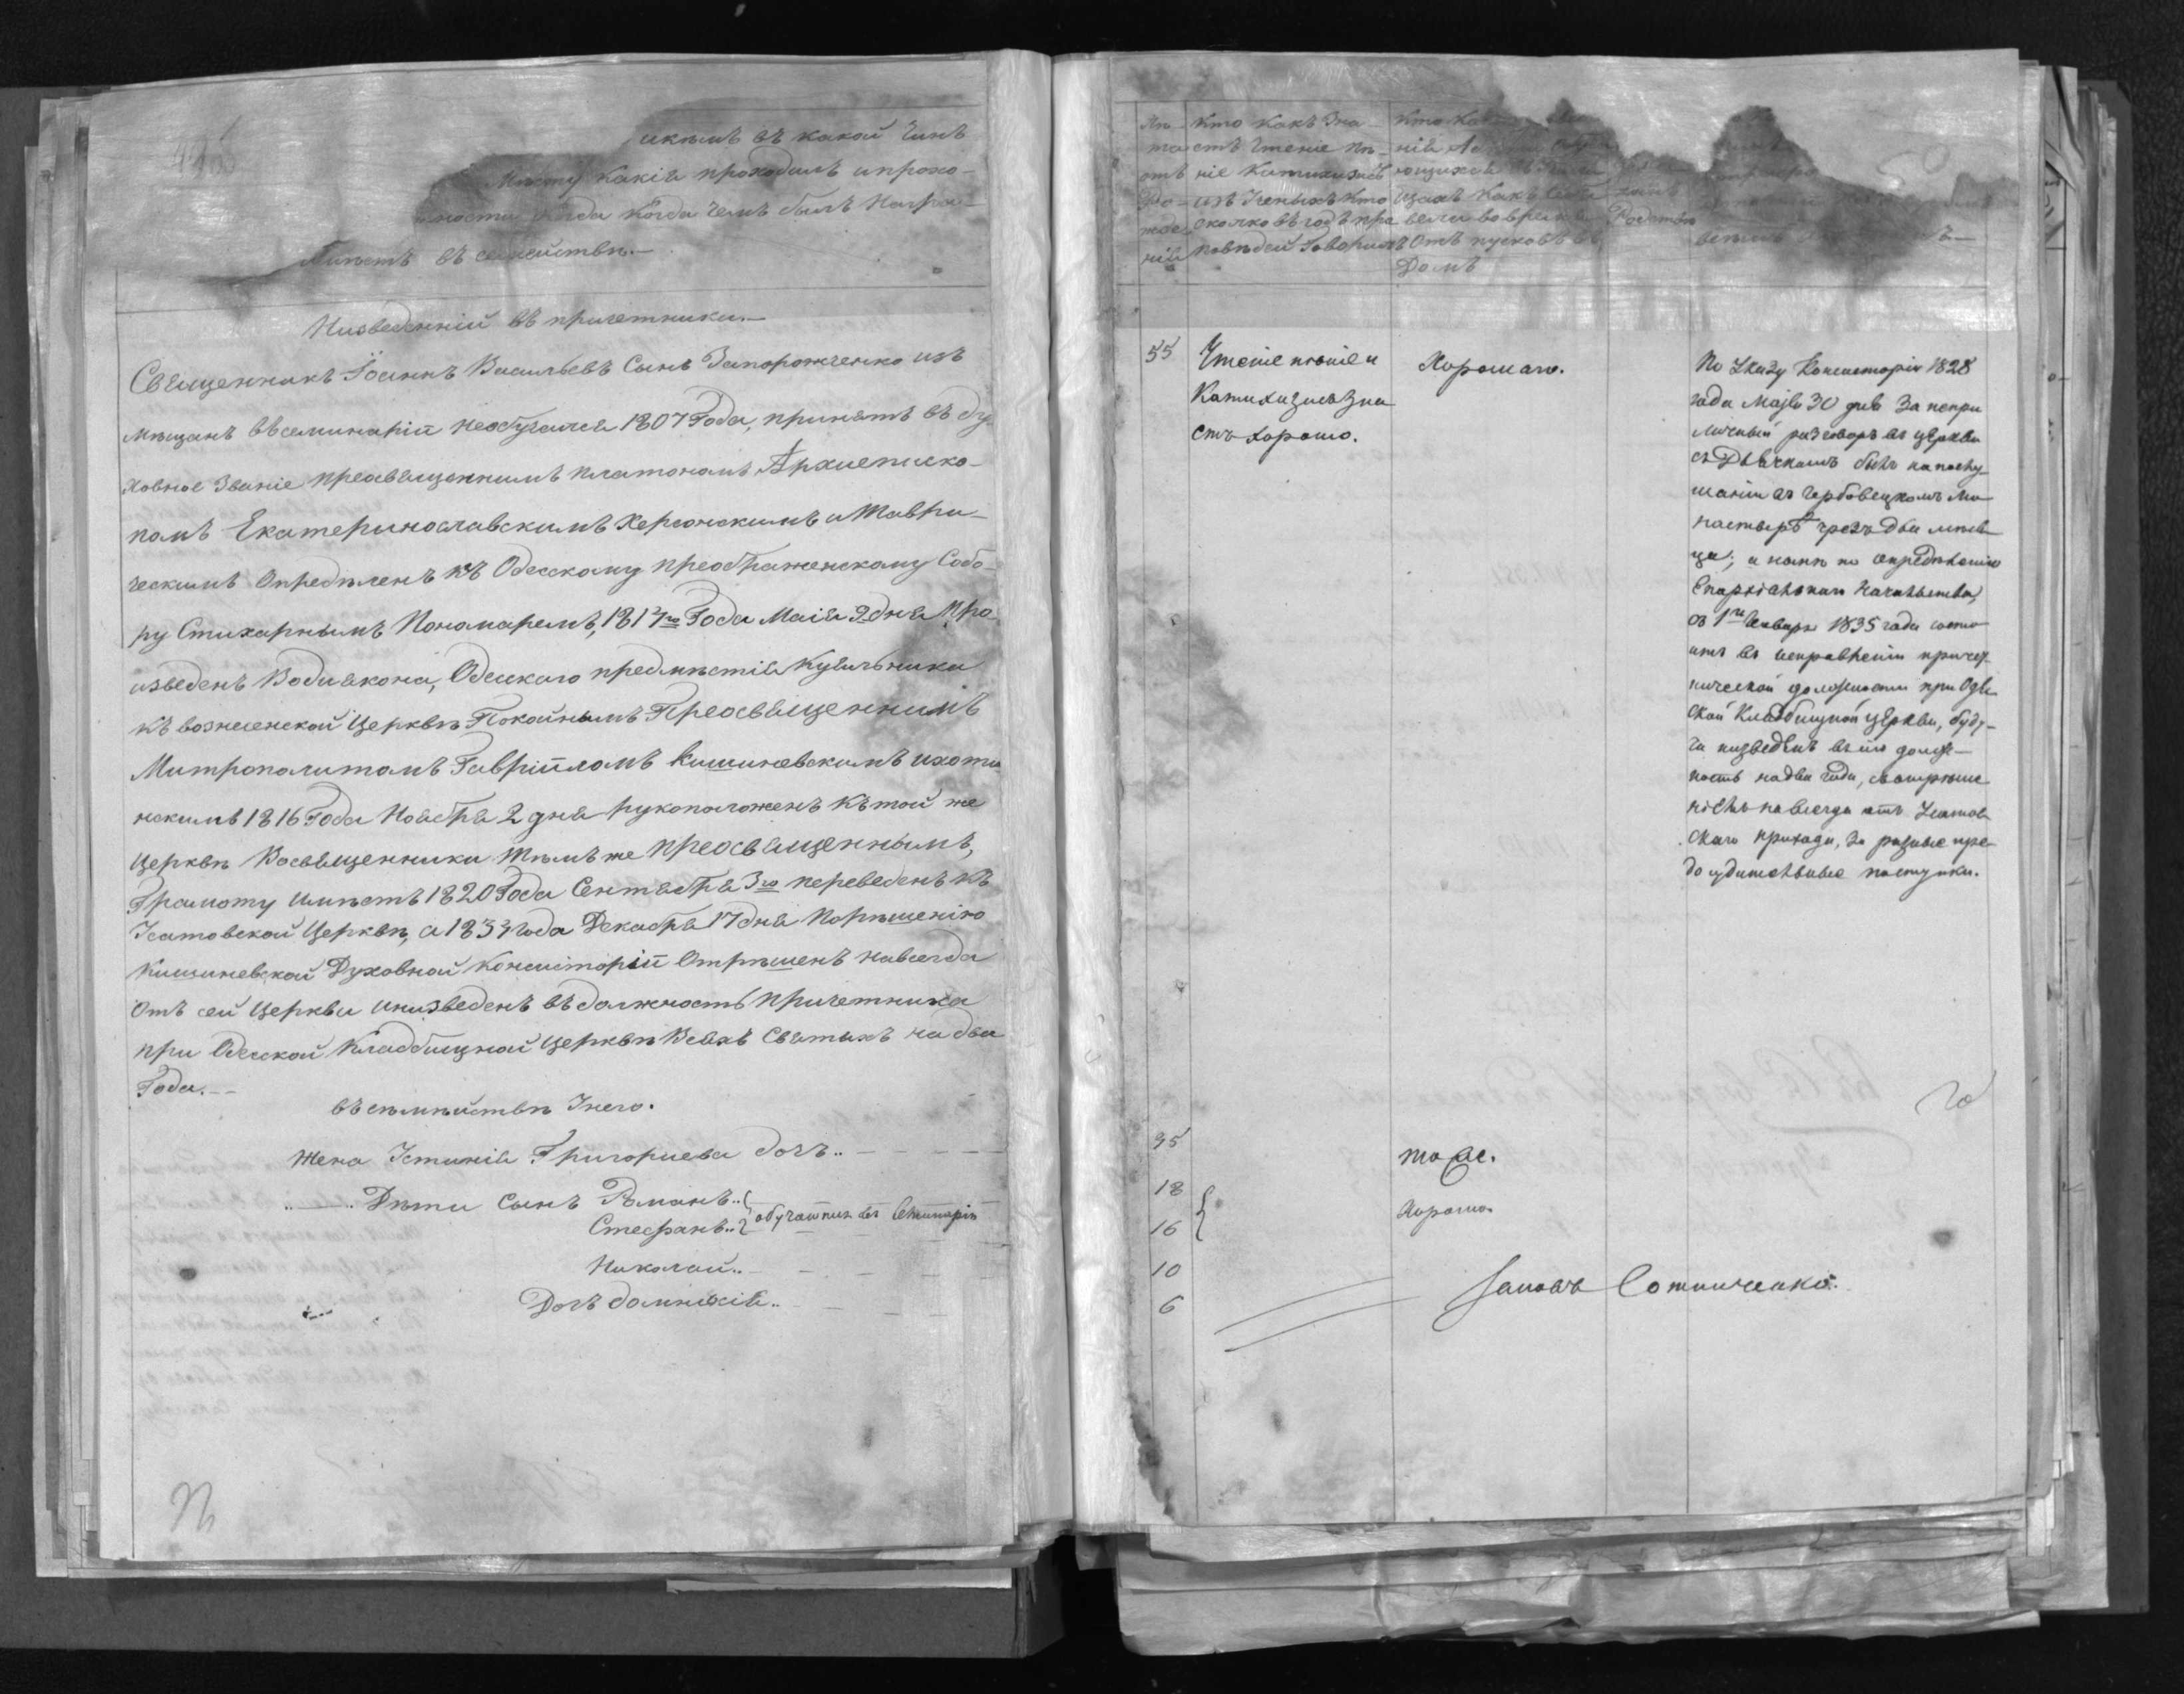 икѣмъ въ какой Чинъ
Мѣсту какія проходилъ ипрохо-
когда чемъ былъ Награ-
въ семействѣ.—
Низведенній въ причетники.—
Священникъ Іоаннъ Васильевъ Сынъ Запорожченко изъ
мѣщанъ въсеминаріи необучался 1807 Года, принятъ въ ду-
ховное Званіе преосвященнимъ платономъ Архиеписко-
помъ Екатеринославскимъ Херсонскимъ и Таври-
ческимъ Опредѣленъ къ Одесскому преображенскому Собо-
ру Стихарнымъ Пономаремъ, Года Маія 9 дня Про-
изведенъ Водиякона, Одесскаго предмѣстія Куяльника
къ вознесенской Церквѣ Покойнымъ Преосвященнимъ
Митрополитомъ Гавріиломъ Кишиневскимъ ихоти-
нскимъ 1816 Года Ноября 2 дня рукоположенъ Ктой же
Церквѣ Восвященники тѣмъ же преосвященнымъ,
Грамоту имѣетъ 1820 Года Сентября 3го переведенъ къ
Усатовской Церквѣ, а года Декабря 17 дня Порѣшенію
Кишиневской Духовной Консисторіи Отрѣшенъ навсегда
Отъ сей Церкви инизведенъ въ должность причетника
при Одесской Кладбищной Церквѣ Всѣхъ Святыхъ на два
Года.--
въсемѣйствѣ Унего.
Жена Устинія Григориева дочъ..
Дѣти Сынъ Романъ..
Стефанъ.. обучаются въ Семинаріи
Николай..
Дочъ домникія..
Лѣ- Кто какъ Зна-
та етъ Чтеніе пѣ-
отъ ніе Катихизисъ
Ро- изъ Ученыхъ Кто
жде сколко въ годъ про
нія повѣдей Говорилъ
Отъ пусковъ въ
Домъ
Родствѣ
55 Чтеніе пѣніе и
Катихизисъ зна
етъ хорошо.
Хорошаго.
По Указу Консисторіи 1828
года Маія 30 дня За непри
личный разговоръ въ церкви
съ Дьячкомъ былъ на послу-
шаніи въ Чербовецкомъ Мо-
настырѣ чрезъ два меся-
ца; и нынѣ по опредѣленію
Епархіальнаго Начальства,
съ 1го Января 1835 года состо
итъ въ исправленіи причет-
нической должности при Одес-
ской Кладбищной церкви, буду-
чи низведенъ въ сію долж-
ность на два года, съ отрѣше
ніемъ навсегда отъ Усатов
скаго прихода, За разные пре-
досудительные поступки.
35 тоже.
18 Хорошо.
16
10
6
Іаковъ Сотниченко.